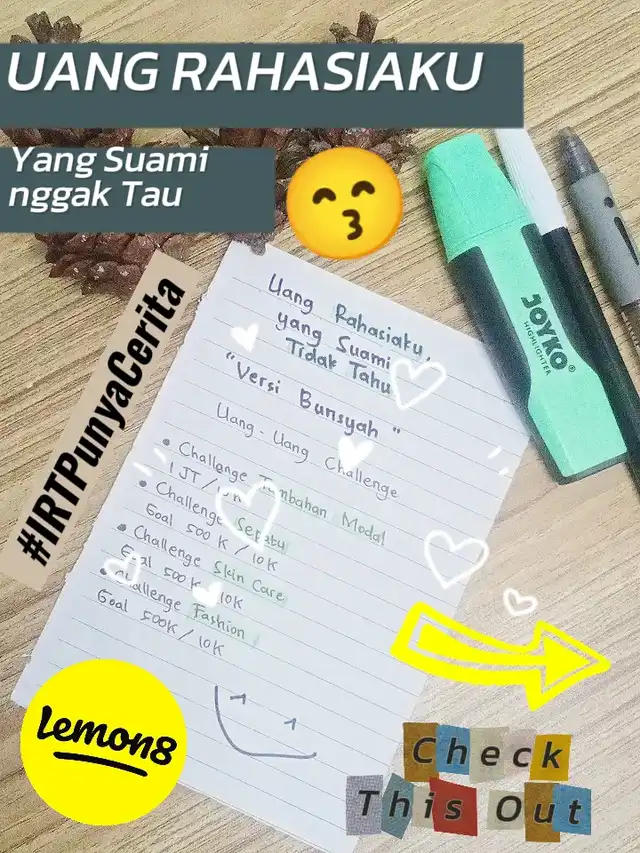 UANG RAHASIAKU
Yang Suami
nggak Tau
#IRTPunyaCerita
Uang Rahasiaku,
yang Suami
Tidak Tahu
"Versi Bunsyah"
Uang-Uang Challenge
• Challenge Tambahan Modal
1 JT /
• Challenge Sepatu
Goal 500 K / 10K
• Challenge Skin Care
Goal 500 K / 10K
• Challenge Fashion
Goal 500K / 10K
JOYKO®
HIGHLIGHTER
Lemon8
Check
This Out